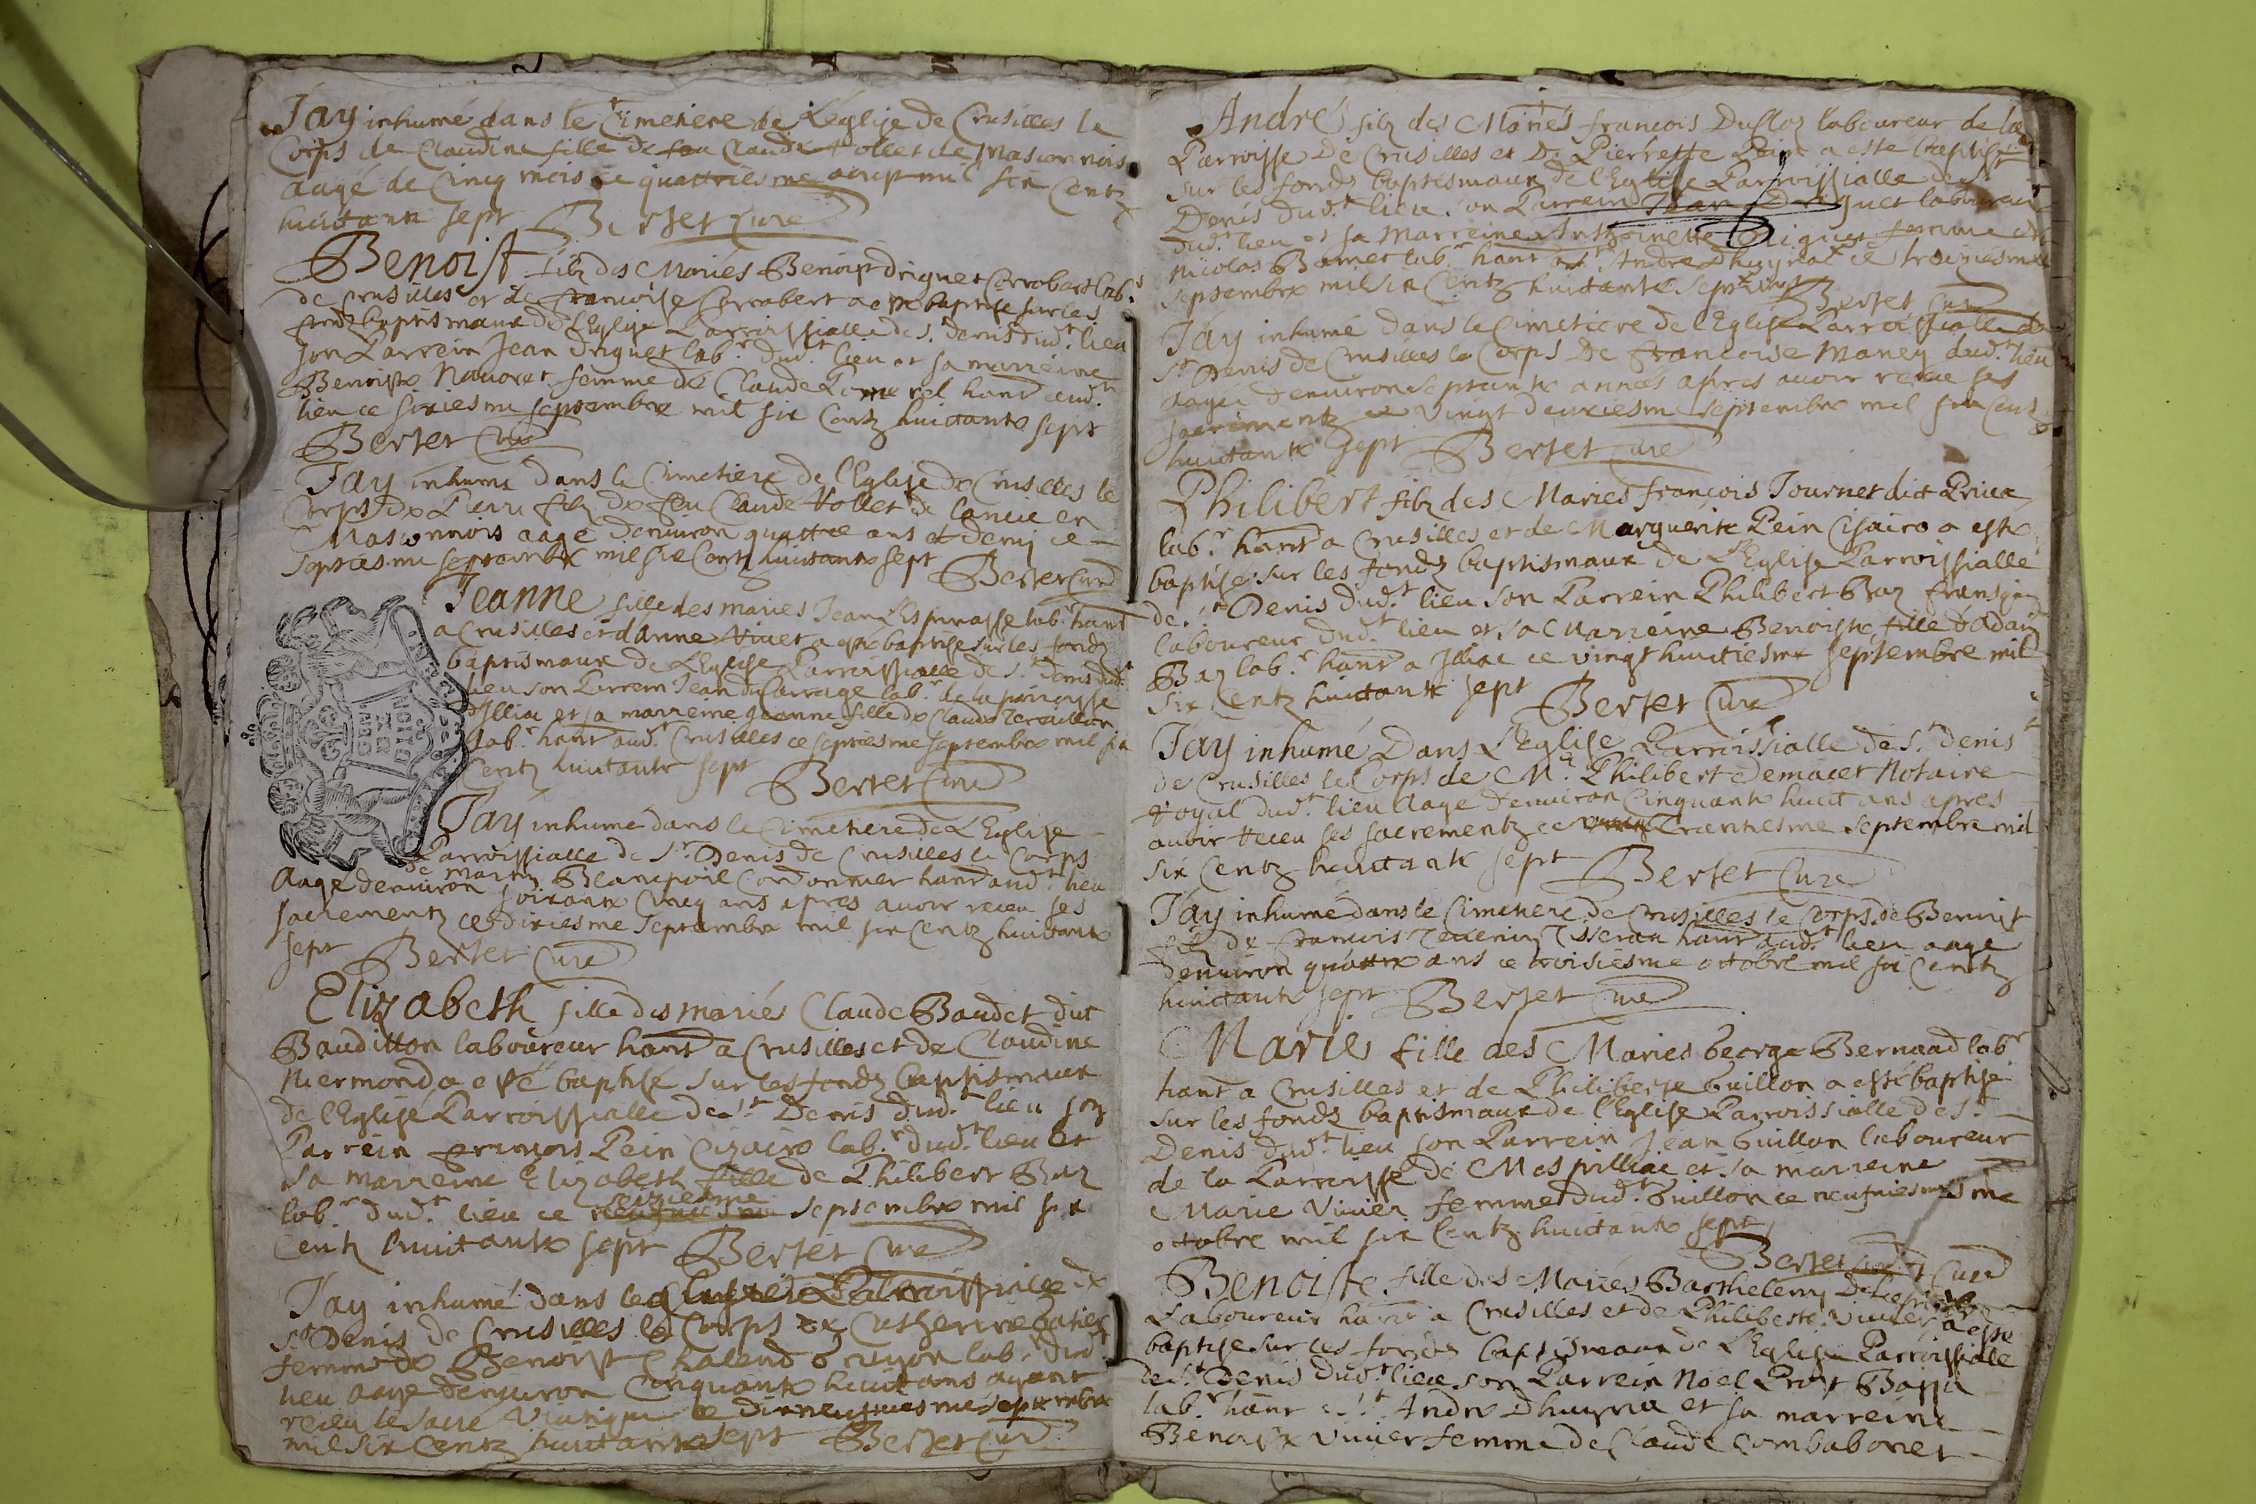 Jay inhumé dans le Cimetiere de L'église de Crusilles le
Corps de Claudine fille de feu Claude Vollet de Masconnois
aagé de Cinq mois ce quattriesme aoust mil six Centz
huictante sept Berset Curé
Benoist filz des Mariés Benoist Driguet labr
de Crusilles et de francoise Corrobert a esté baptisé sur les
fondz baptismaux de l'Eglise Parroissialle de St Denis dudt lieu
son Parrein Jean Driguet labr dudt lieu et sa marreine
Benoiste Navoret femme de Claude hant audt
lieu ce sixiesme septembre mil six Centz huictante sept
Berset Curé
Jay inhumé dans le Cimetiere de l'Eglise de Crusilles le
Corps de Pierre filz de feu Claude Vollet de en
Masconnois aagé denviron quattre ans et demy ce
septiesme septembre mil six Centz huictante sept Berset Curé
Jeanne fille des mariés Jean Lespinasse labr hant
a Crusilles et d'anne Vivet a esté baptisé sur les fondz
baptismaux de L'Eglise Parroissialle de St Denis dudt
lieu son Parrein Jean du Carrage labr de la parroisse
d'Illiac et sa marreine Jeanne fille de Claude
labr hant audt Crusilles ce septiesme septembre mil six
Centz huictante sept Berset Curé
Jay inhumé dans le Cimetiere de L'Eglise
Parroissialle de St Denis de Crusilles le Corps
de martin Blancpoil Cordonnier hant audt lieu
Aagé denviron soixante Cinq ans apres avoir receu ses
sacrementz ce dixiesme septembre mil six Centz huictante
sept Berset Curé
Elizabeth fille des mariés Claude Baudet dit
Baudillon laboureur hant a Crusilles et de Claudine
Niermond a esté baptisé sur les fondz baptismaux
de l'Eglise Parroissialle de St Denis dudt lieu son
Parrein françois Pein Cizaire labr dudt lieu et
sa marreine Elizabeth fille de Philibert Baz
labr dudt lieu ce seiziesme septembre mil six
Centz huictante sept Berset Curé
Jay inhumé dans le Parroissialle de
St Denis de Crusilles le Corps de Catherine
femme de Benoist Chaland labr dudt
lieu aagé denviron Cinquante huict ans ayant
receu le sacré Viatique ce dixneufviesme septembre
mil six Centz huictante sept Berset Curé
André filz des Mariés françois Duclos laboureur de la
Parroisse De Crusilles et De Pierrette Pein a esté baptisé
sur les fondz baptismaux de l'Eglise Parroissialle de St
Denis dudt lieu son Parrein Jean Driguet laboureur
dudt lieu et sa Marreine Anthoinette Driguet femme de
Nicolas Bornet labr hant a St André d'huyriat ce treiziesme
septembre mil six Centz huictante sept Berset Curé
Jay inhumé dans le Cimetiere de l'Eglise Parroissialle de
St Denis de Crusilles le Corps De francoise Maney dudt lieu
aagée denviron septante années apres avoir receu ses
sacrementz ce vingt deuxiesme septembre mil six Centz
huictante sept Berset Curé
Philibert filz des Mariés françois Tournet dict Prieux
labr hant a Crusilles et de Marguerite Pein Cisaire a esté
baptisé sur les fondz baptismaux de L'Eglise Parroissialle
de St Denis dudt lieu son Parrein Philibert Braz
laboureur dudt lieu et sa Marreine Benoiste fille d'Adam
Baz labr hant a Illiac ce vingt huictiesme septembre mil
six Centz huictante sept Berset Curé
Jay inhumé Dans L'Eglise Parroissialle de St Denis
de Crusilles le Corps de Me Philibert Demacet Notaire
royal dudt lieu Aagé denviron Cinquante huict ans apres
avoir receu ses sacrementz ce Trantiesme septembre mil
six Centz huictante sept Berset Curé
Jay inhumé dans le Cimetiere de Crusilles le Corps de Benoist
filz de francois Tevenin Tisseran hant audt lieu aagé
denviron quattre ans ce troisiesme octobre mil six Centz
huictante sept Berset Curé
Marie fille des Mariés George Bernaad labr
hant a Crusilles et de Philiberte Guillon a esté baptisé
sur les fondz baptismaux de l'Eglise Parroissialle de St
Denis dudt lieu son Parrein Jean Guillon laboureur
de la Parroisse de Mespilliac et sa marreine
Marie Vivier femme dudt Guillon ce neufviesme
octobre mil six Centz huictante sept
Berset Curé
Benoiste fille des Mariés Barthelemy
Laboureur hant a Crusilles et de Philiberte Vivier a esté
baptisé sur les fondz baptismaux de L'Eglise Parroissialle
de St Denis dudt lieu son Parrein Noel Prost Bassy
labr hant a St André d'huyria et sa marreine
Benoiste Vivier femme de Claude Combabonet